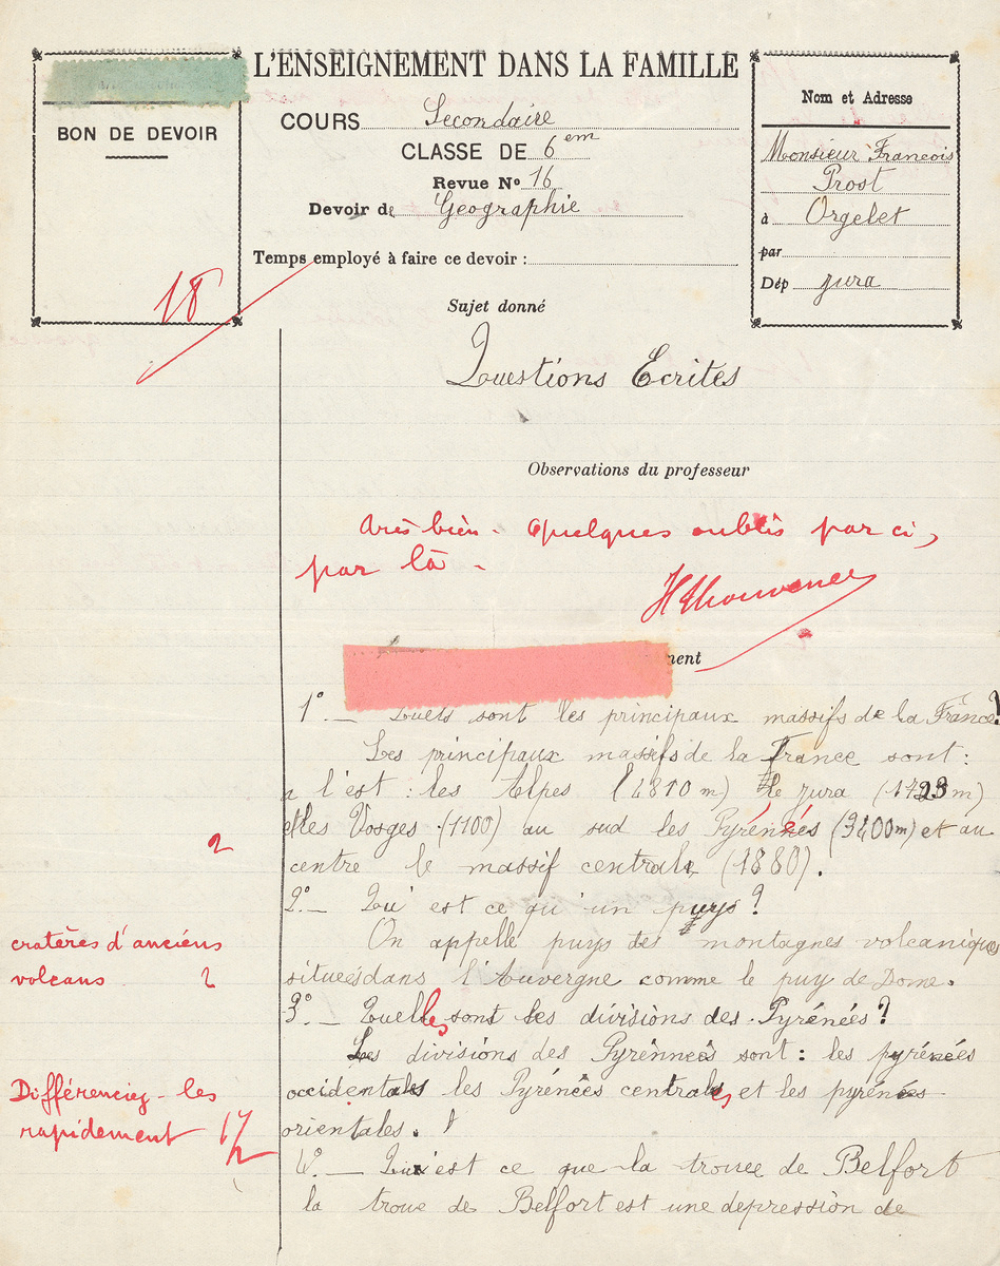 L'ENSEIGNEMENT DANS LA FAMILLE
BON DE DEVOIR
18
COURS Secondaire
CLASSE DE 6em
Revue No 16
Devoir de Geographie
Temps employé à faire ce devoir :
Nom et Adresse
Monsieur Francois
Prost
à Orgelet
par
Dép Jura
Sujet donné
Questions Ecrites
Observations du professeur
Très bien - Quelques oublis par ci,
par là -
ment
1° — Quels sont les principaux massifs de la France?
Les principaux massifs de la France sont :
a l'est : les Alpes (4810 m) le jura (1723 m)
et les Vosges (1100) au sud les Pyrénnées (3400m) et au
2
centre le massif central (1880).
2° — Qu'est ce qu'un puys ?
cratères d'anciens
On appelle puys des montagnes volcaniques
volcans 2
situeés dans l'Auvergne comme le puy de Dome.
3° — Quelles sont les divisions des Pyrénées ?
Les divisions des Pyrénneés sont : les pyrénées
Différenciez-les
occidentales les Pyrénées centrales, et les pyrénées
rapidement 1 1/2
orientales.
4° — Qu'est ce que la trouee de Belfort
la troue de Belfort est une depression de